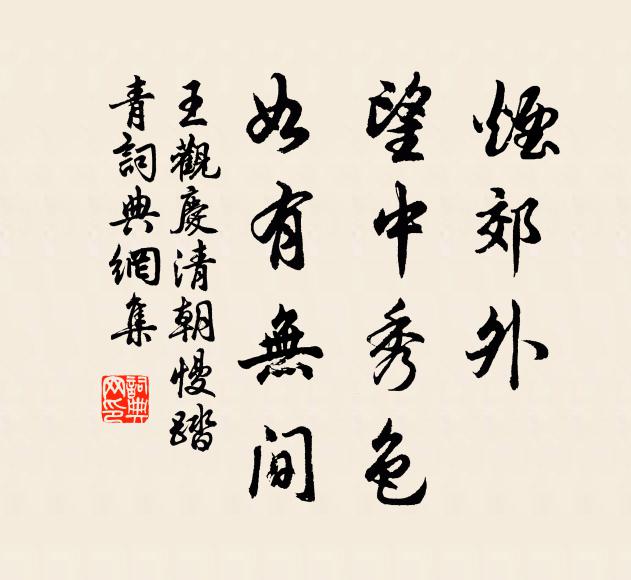 煙郊外
望中秀色
如有無間
王觀慶清朝慢踏
青詞典網集
詞典网印